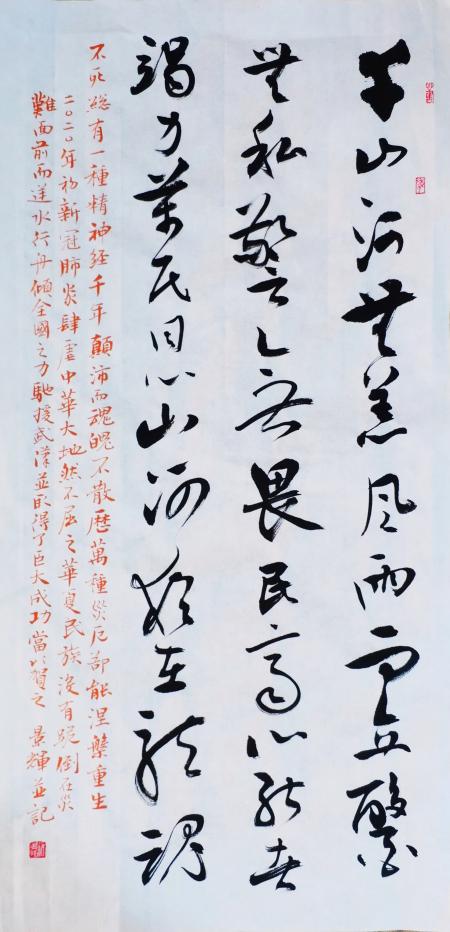 山河無恙風雨醫
無私警無畏民齊心能者
竭力萬民同心山河猶在龍魂
不死總有一種精神經千年顛沛而魂魄不散歷萬種災厄卻能涅槃重生
二〇二〇年初新冠肺炎肆虐中華大地然不屈之華夏民族沒有跪倒在災
難面前而逆水行舟傾全國之力馳援武漢並取得了巨大成功當以賀之 景輝並記